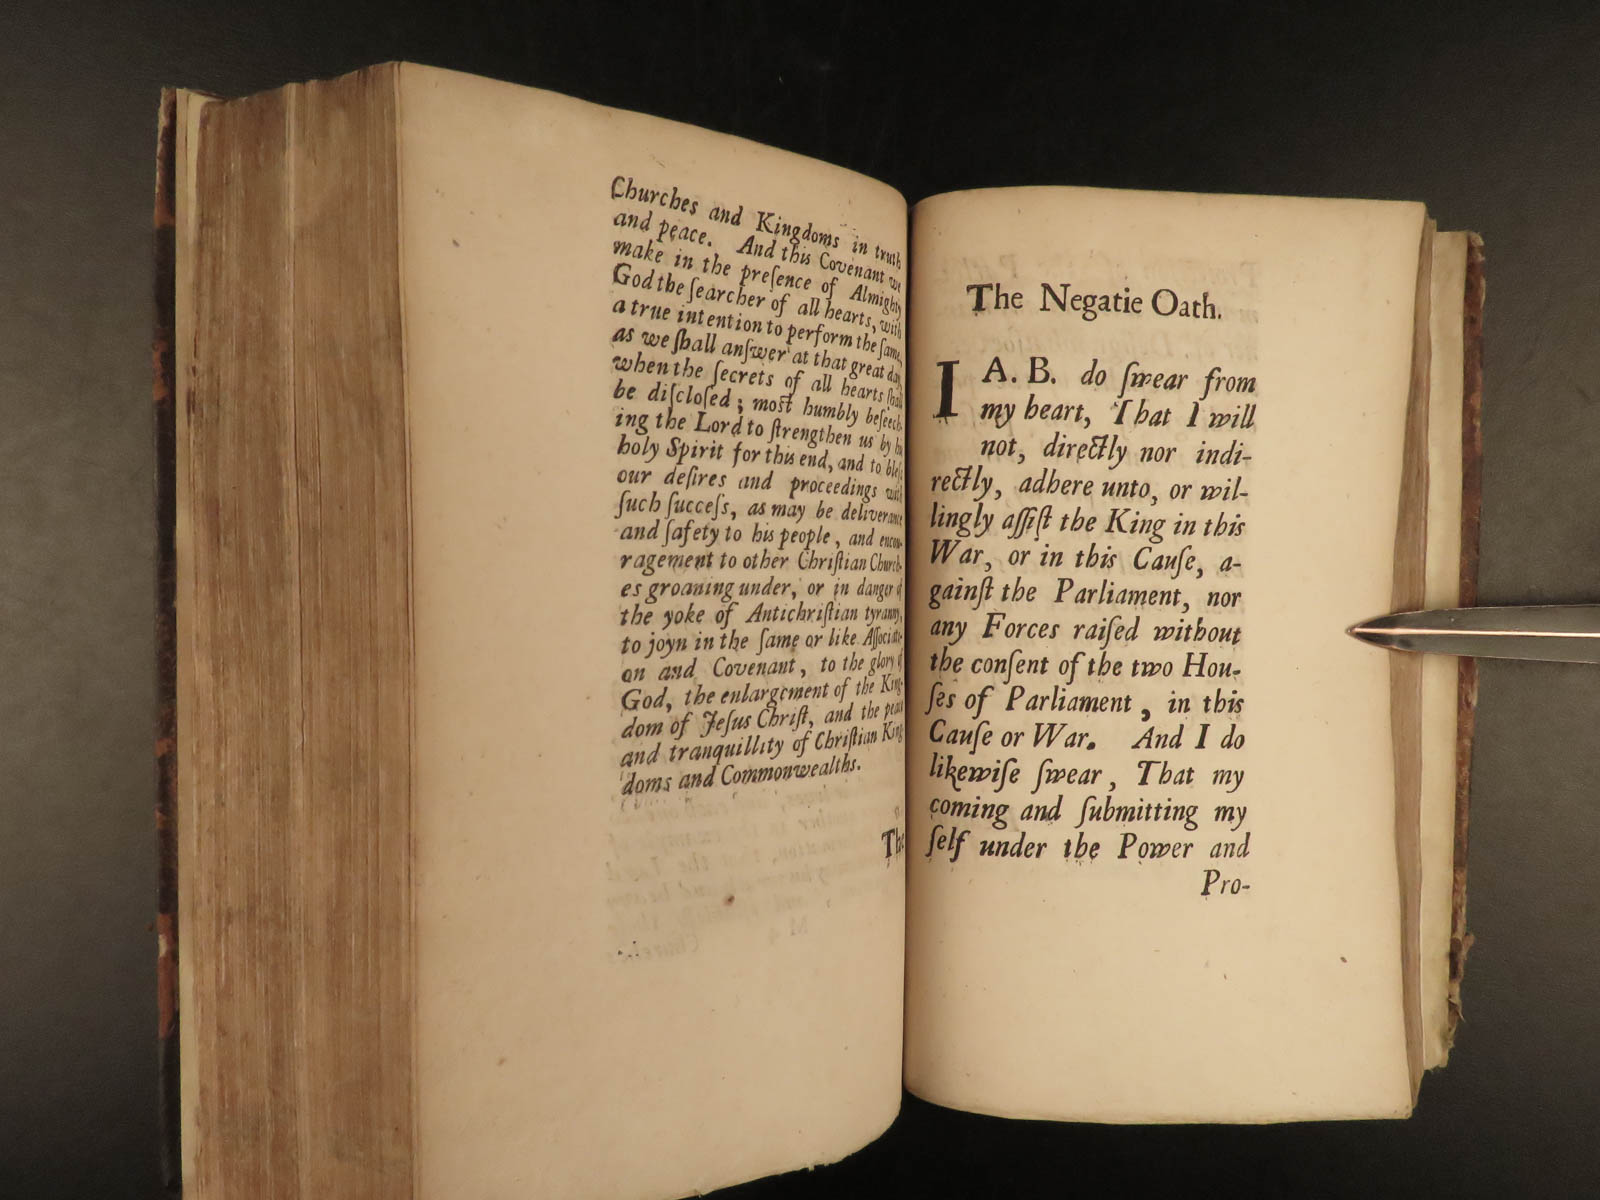 Churches and Kingdoms in truth
and peace. And this Covenant we
make in the preſence of Almighty
God the ſearcher of all hearts, with
a true intention to perform the ſame,
as we ſhall anſwer at that great day,
when the ſecrets of all hearts ſhall
be diſcloſed; moſt humbly beſeech-
ing the Lord to ſtrengthen us by his
holy Spirit for this end, and to bleſs
our deſires and proceedings with
ſuch ſucceſs, as may be deliverance
and ſafety to his people, and encou-
ragement to other Chriſtian Church-
es groaning under, or in danger of
the yoke of Antichriſtian tyranny,
to joyn in the ſame or like Aſſociati-
on and Covenant, to the glory of
God, the enlargement of the King-
dom of Jeſus Chriſt, and the peace
and tranquillity of Chriſtian King-
doms and Commonwealths.
The
The Negatie Oath.
I A. B. do ſwear from
my heart, That I will
not, directly nor indi-
rectly, adhere unto, or wil-
lingly aſſiſt the King in this
War, or in this Cauſe, a-
gainſt the Parliament, nor
any Forces raiſed without
the conſent of the two Hou-
ſes of Parliament, in this
Cauſe or War. And I do
likewiſe ſwear, That my
coming and ſubmitting my
ſelf under the Power and
Pro-